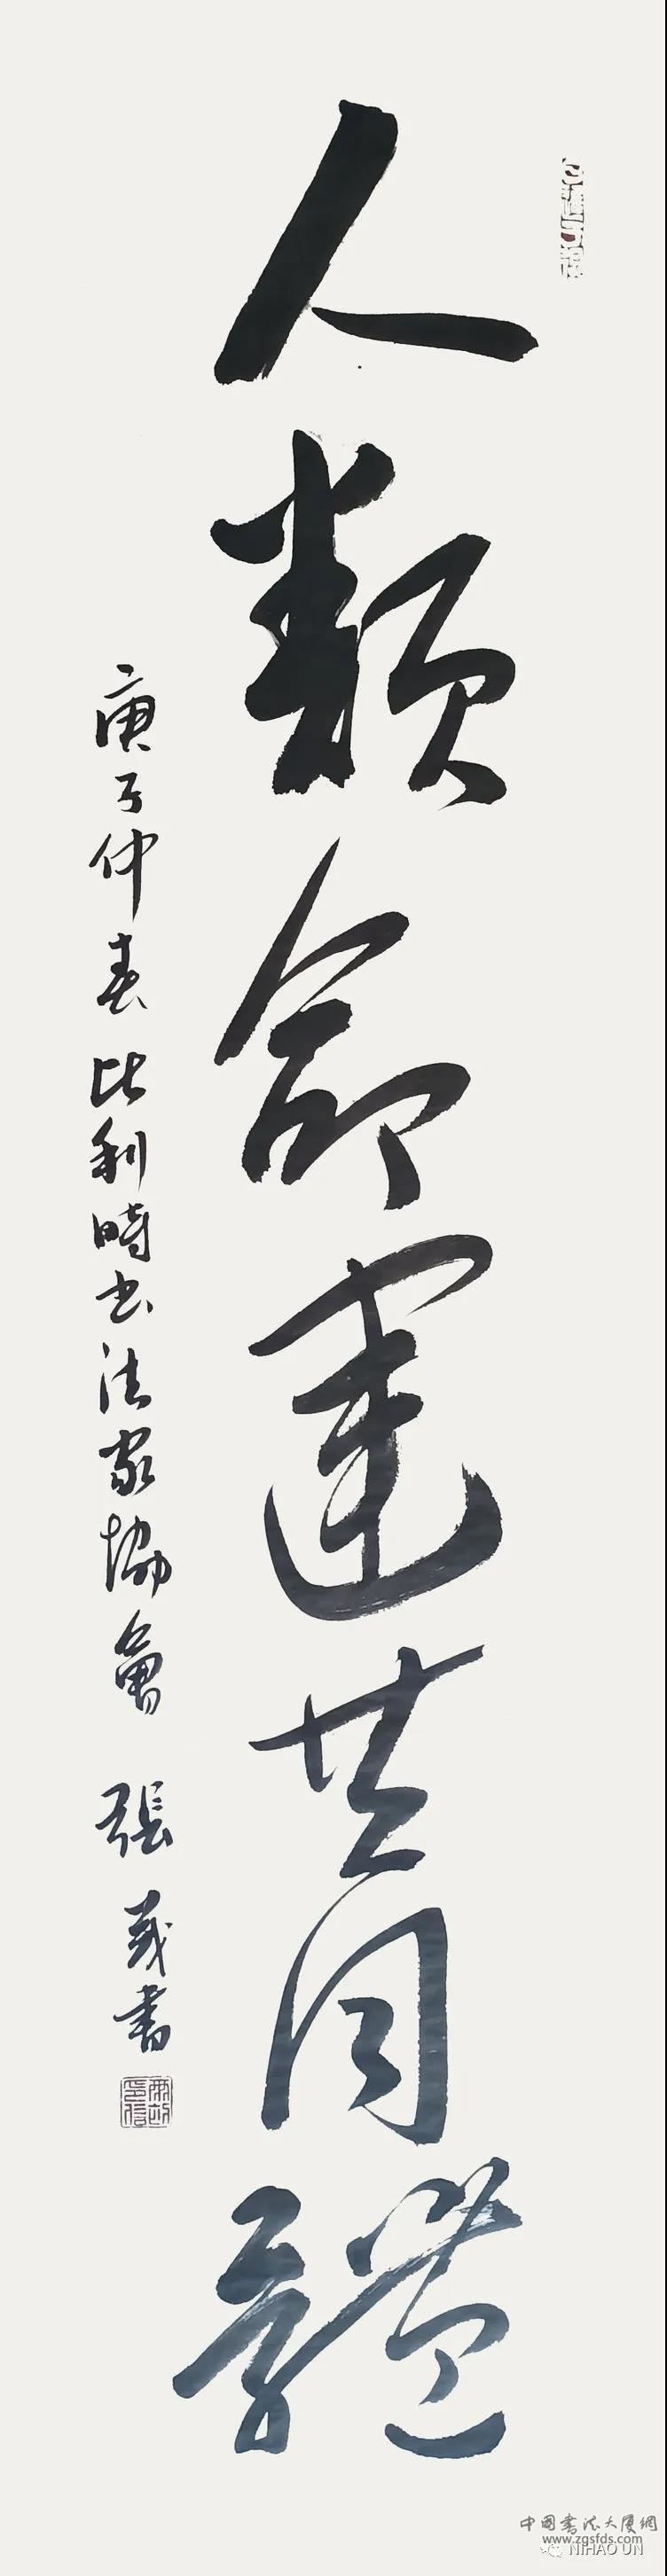 人類命運共同體
庚子仲春 比利時书法家協會 張 書
中國書法大廈網
www.zgsfds.com
NIHAO UN